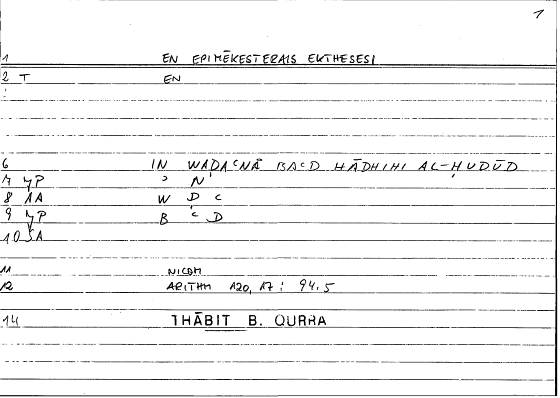 1
1 EN EPIMĒKESTERAIS EKTHESESI
2 T EN
:
6 IN WADAʿNĀ BAʿD HĀDHIHI AL-ḤUDŪD
7 ʾ N
8 AA W Ḍ ʿ
9 B ʿ D
10
11 NICOM
12 ARITHM 120, 17 : 94.5
14 THĀBIT B. QURRA